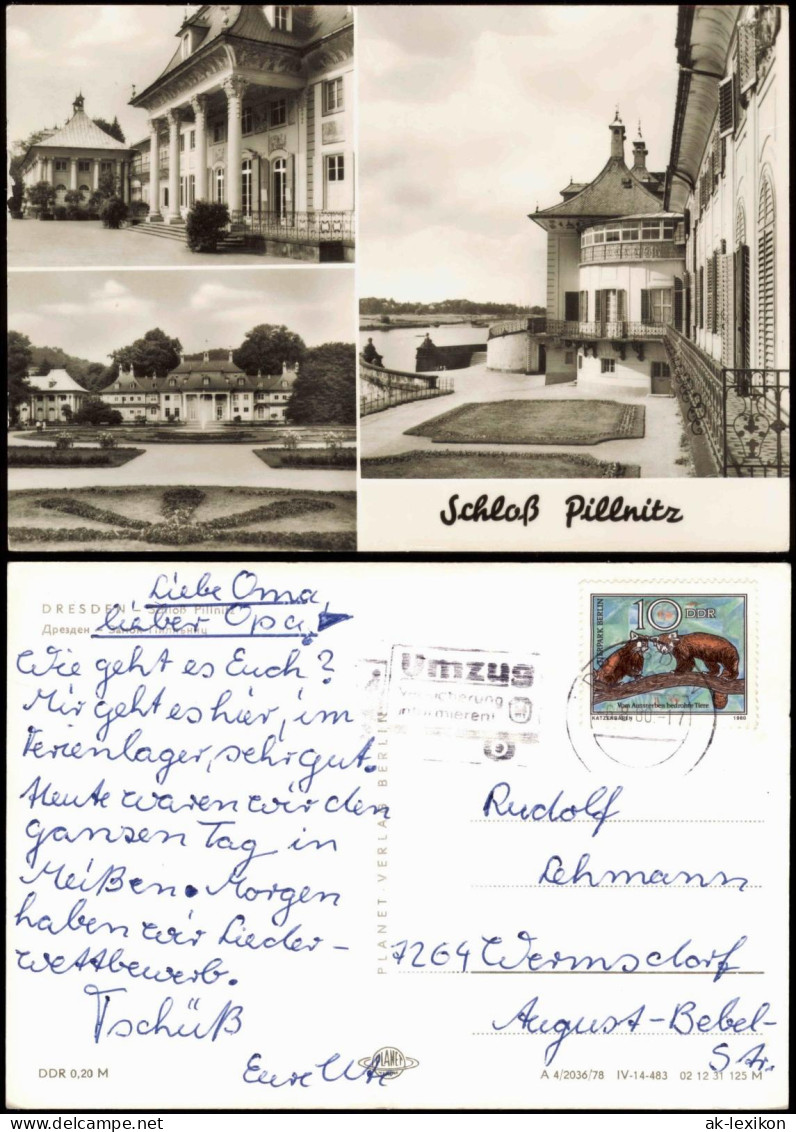 Schloß Pillnitz
DRESDEN – Schloß Pillnitz
Дрезден – Замок Пилльниц
Liebe Oma,
lieber Opa!
Wie geht es Euch?
Mir geht es hier, im
Ferienlager, sehr gut.
Heute waren wir den
ganzen Tag in
Meißen. Morgen
haben wir Lieder-
wettbewerb.
Tschüß
Eure Ute
DDR 0,20 M
PLANET-VERLAG BERLIN
PLANET
Umzug
Versicherung
informieren!
TIERPARK BERLIN
10 DDR
Vom Aussterben bedrohte Tiere
KATZENBÄREN 1980
Rudolf
Lehmann
7264 Wermsdorf
August-Bebel-
Str.
A 4/2036/78 IV-14-483 02 12 31 125 M
ak-lexikon.com